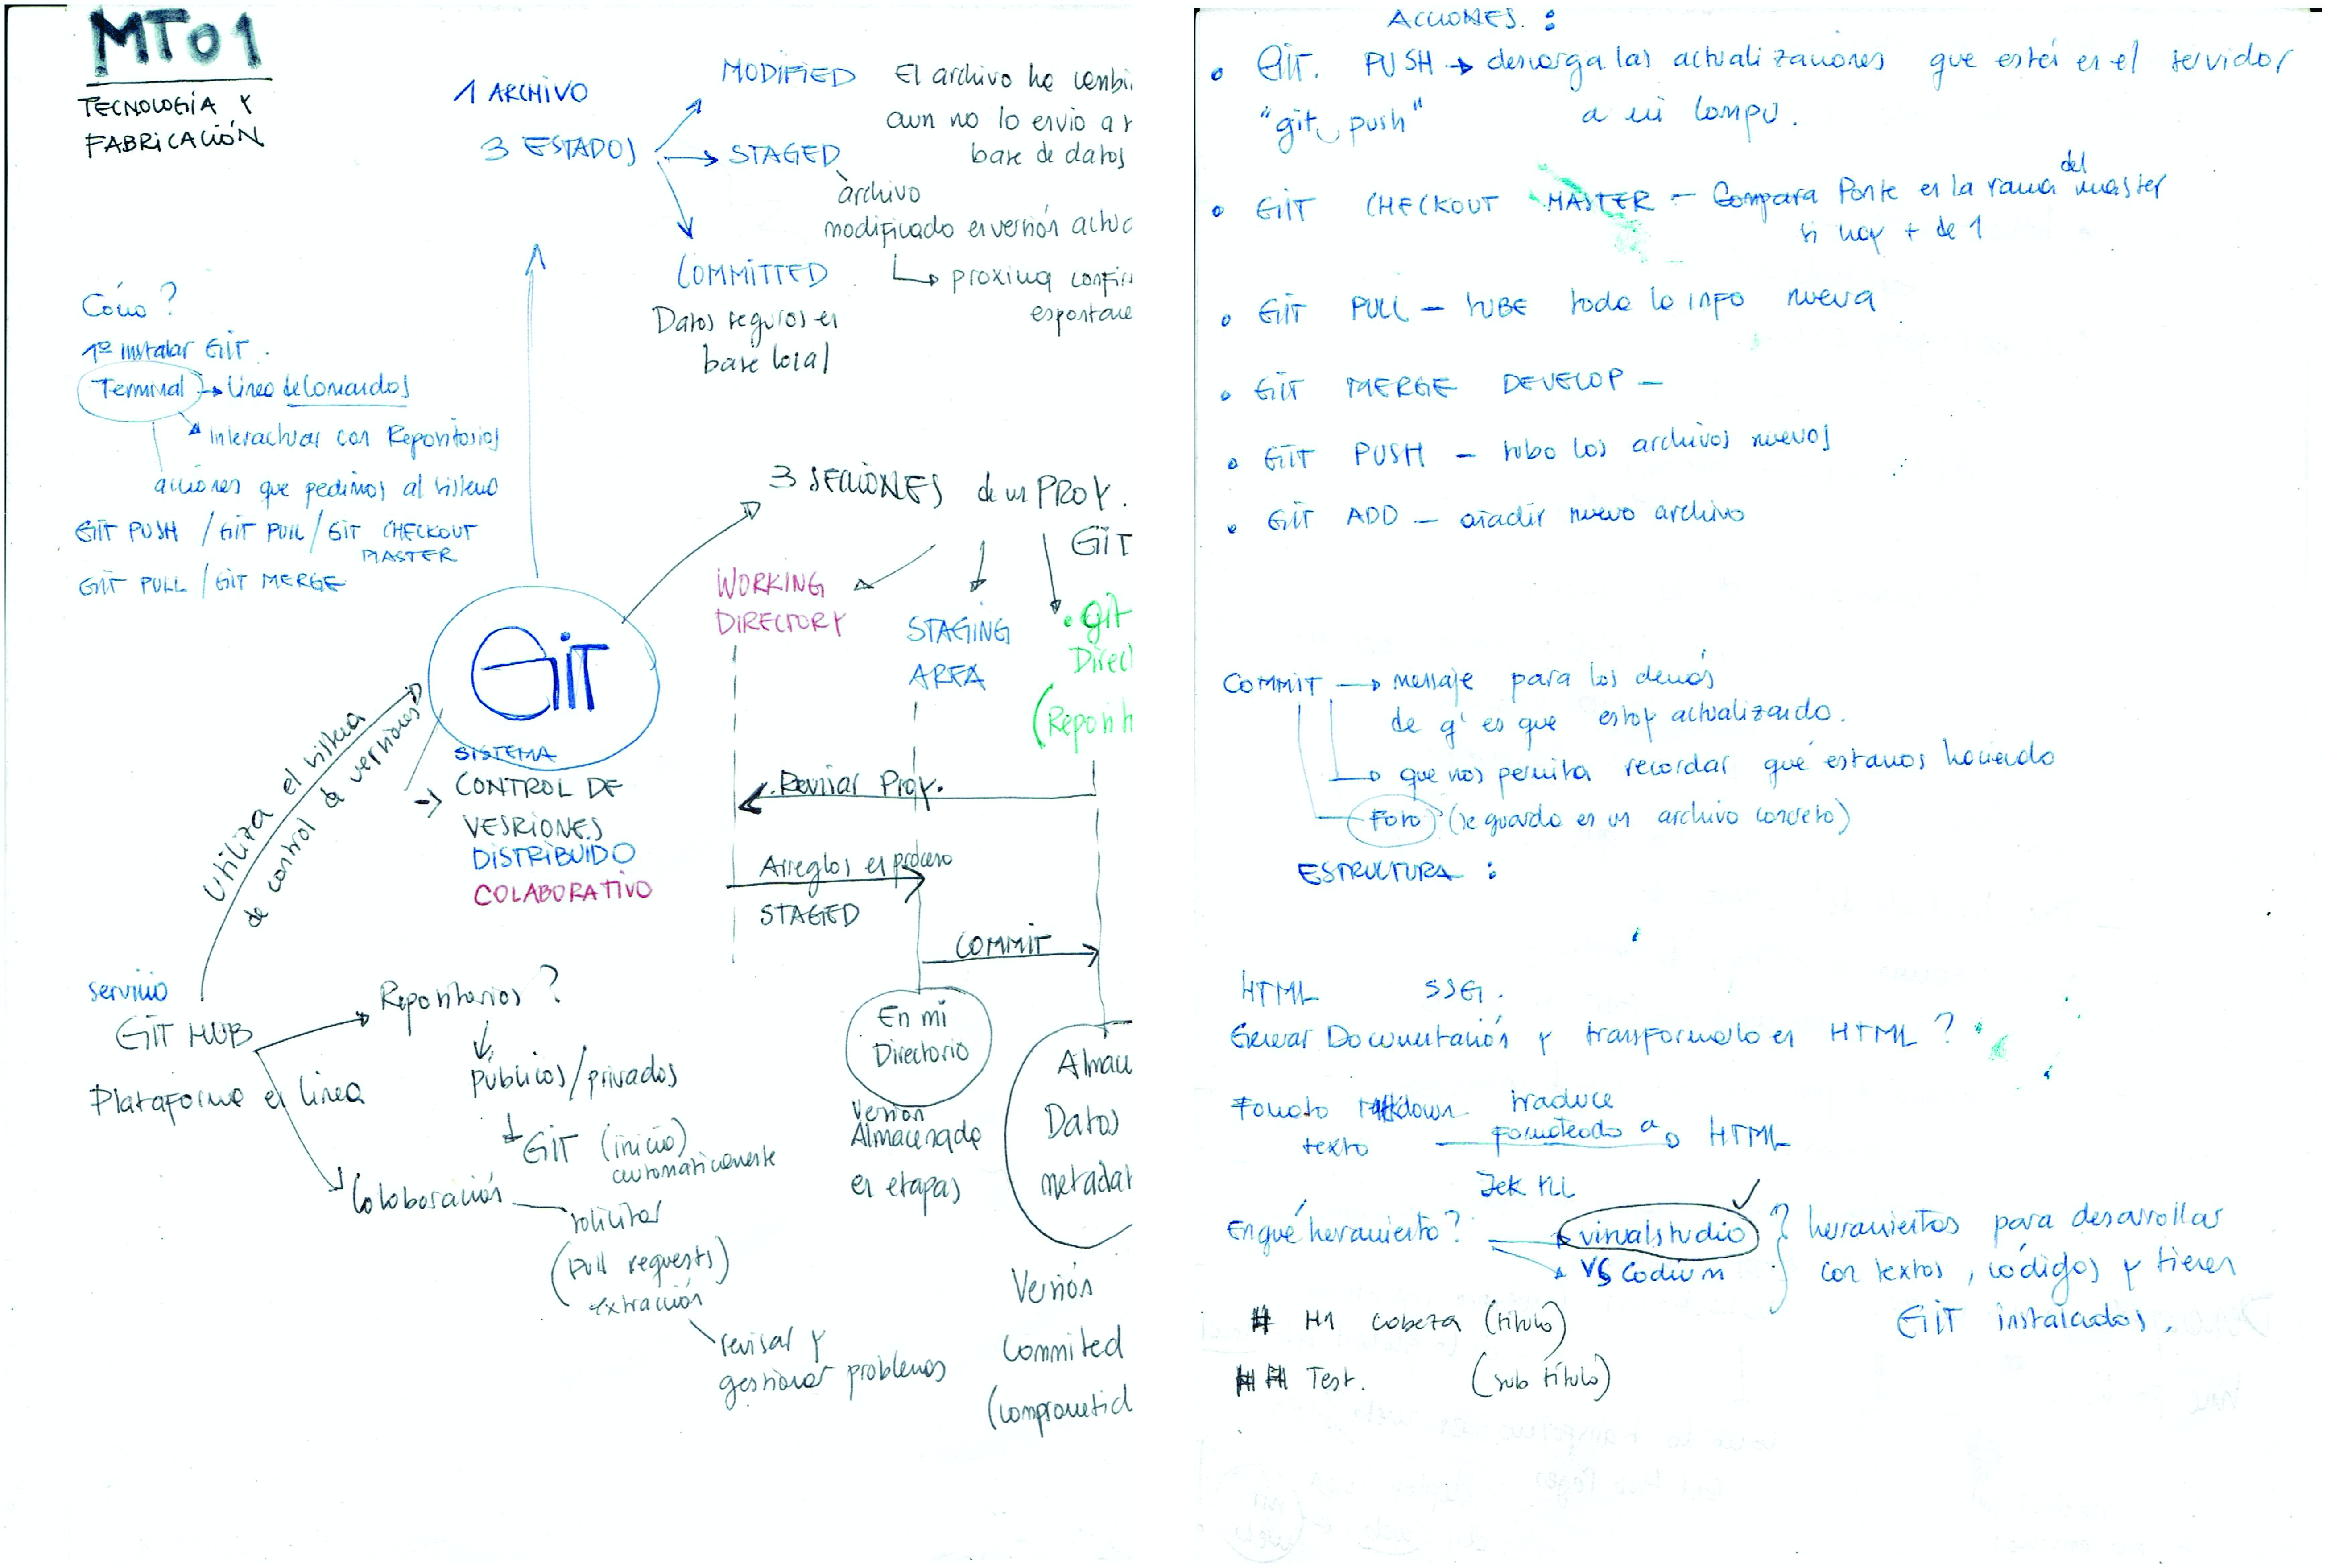 MT01
TECNOLOGÍA Y
FABRICACIÓN
1 ARCHIVO
3 ESTADOS
MODIFIED
El archivo ha cambi
aun no lo envio a
base de datos
STAGED
archivo
modificado en versión actua
proxima confir
COMMITTED
Datos seguros en
base local
Cómo ?
1º instalar GIT.
Terminal → linea de comandos
Interactuar con Repositorios
acciones que pedimos al sistema
GIT PUSH / GIT PULL / GIT CHECKOUT
MASTER
GIT PULL / GIT MERGE
3 SECCIONES de un PROY.
GIT
WORKING
DIRECTORY
STAGING
AREA
.git
Direct
(Reposit
GIT
SISTEMA
CONTROL DE
VESRIONES
DISTRIBUIDO
COLABORATIVO
Utiliza el sistema
de control de versiones
Revisar Proy.
Arreglos en proceso
STAGED
COMMIT
En mi
Directorio
Versión
Almacenada
en etapas
Almac
Datos
metadat
Versión
Commited
(comprometid
servicio
GIT HUB
Plataforma en linea
Repositorios ?
Públicos/privados
GIT (inicio)
automaticamente
Colaboración
solicitar
(Pull requests)
extracción
revisar y
gestionar problemas
ACCIONES. :
• GIT. PUSH → descarga las actualizaciones que están en el servidor
"git push" a mi compu.
• GIT CHECKOUT MASTER – Compara Ponte en la rama del master
si hay + de 1
• GIT PULL – SUBE toda la info nueva
• GIT MERGE DEVELOP –
• GIT PUSH – subo los archivos nuevos
• GIT ADD – añadir nuevo archivo
COMMIT → mensaje para los demás
de q' es que estoy actualizando.
→ que nos permita recordar qué estamos haciendo
Foto (se guarda en un archivo concreto)
ESTRUCTURA :
HTML SSG.
Generar Documentación y transformarlo en HTML ?
traduce
texto formateado a HTML
Jek
En qué herramienta?
visualstudio
VS Codium
herramientas para desarrollar
con textos, códigos y tienen
GIT instalados.
# H1 cabeza (título)
## Test. (sub título)